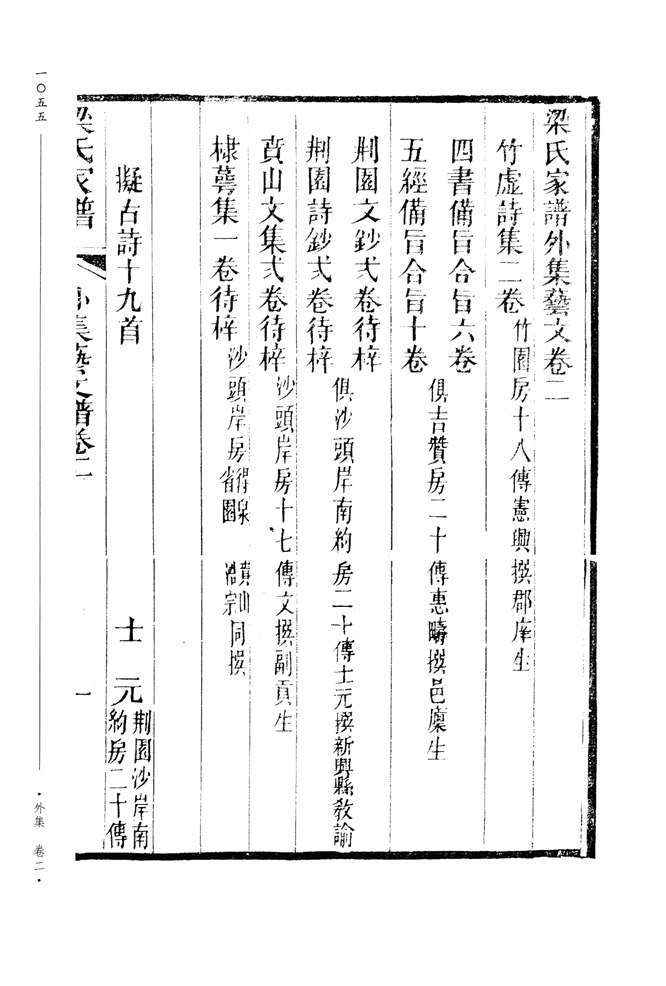 梁氏家譜外集藝文卷二
竹虛詩集二卷 竹園房十八傳憲興撰郡庠生
四書備旨合旨六卷
五經備旨合旨十卷 俱吉贊房二十傳惠疇撰邑廩生
荆園文鈔弍卷待梓
荆園詩鈔弍卷待梓 俱沙頭岸南約房二十傳士元撰新興縣教諭
賁山文集弍卷待梓 沙頭岸房十七傳文撰副貢生
棣萼集一卷待梓 沙頭岸房省園 得泉 賁山 浩宗同撰
擬古詩十九首 士元 荆園沙岸南約房二十傳
梁氏家譜 外集藝文譜卷二 一
一〇五五
·外集 卷二·